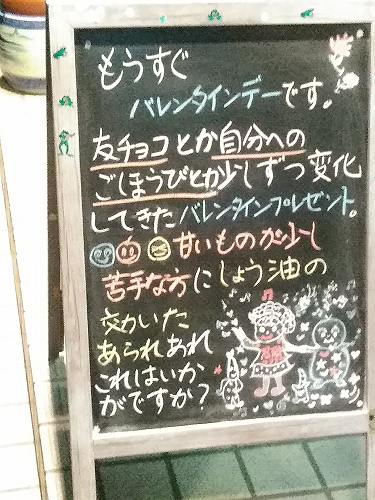 もうすぐ
バレンタインデーです。
友チョコとか自分への
ごほうびとか少しずつ変化
してきたバレンタインプレゼント。
甘いものが少し
苦手な方にしょう油の
効いた
あられあれ
これはいか
がですか?